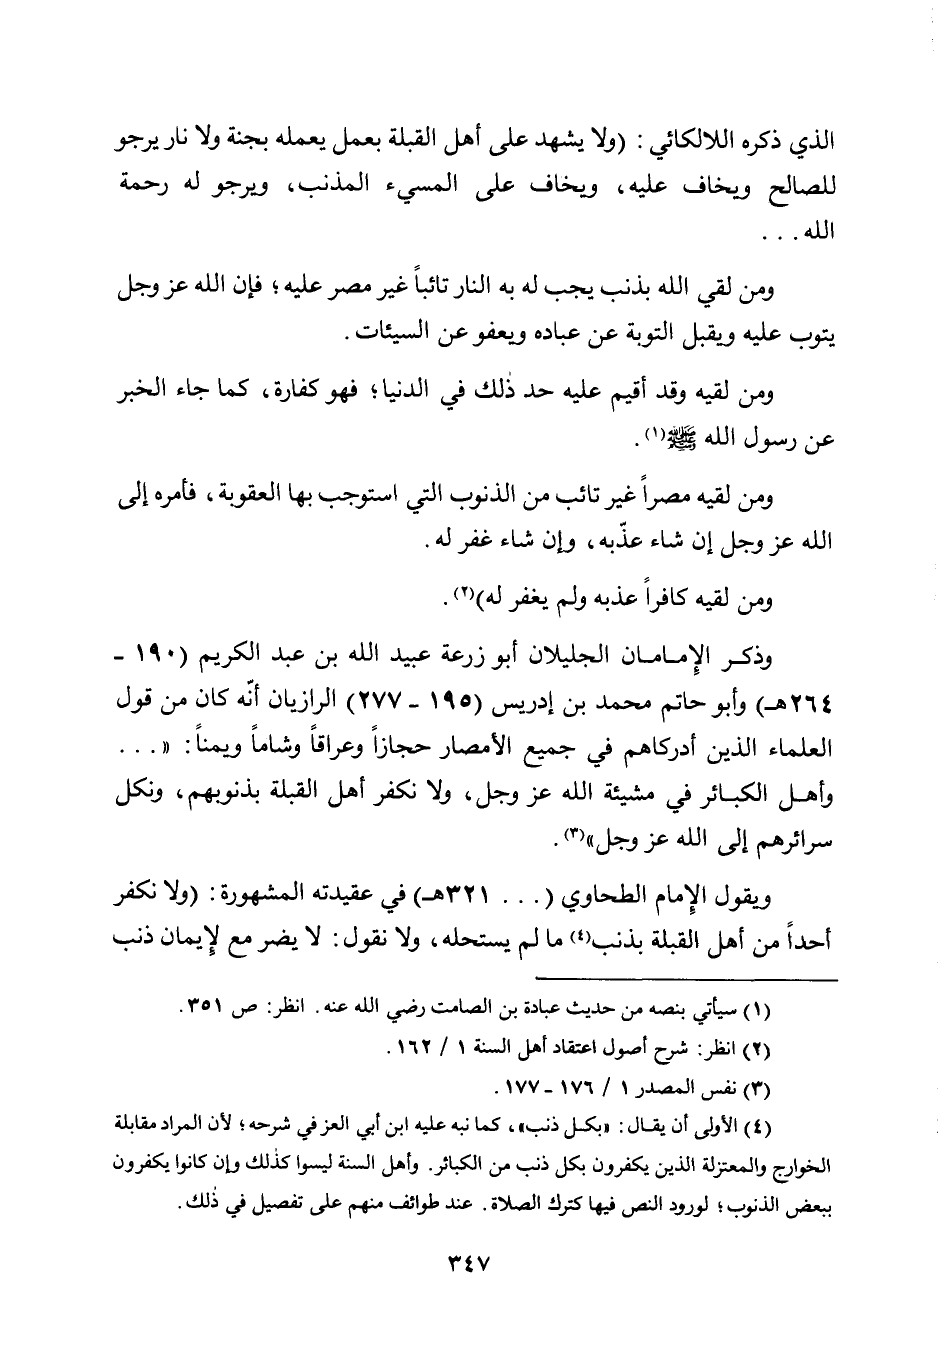 الذي ذكره اللالكائي : (ولا يشهد على أهل القبلة بعمل يعمله بجنة ولا نار يرجو
للصالح ويخاف عليه، ويخاف على المسيء المذنب، ويرجو له رحمة
الله . . .
ومن لقي الله بذنب يجب له به النار تائباً غير مصر عليه؛ فإن الله عز وجل
يتوب عليه ويقبل التوبة عن عباده ويعفو عن السيئات .
ومن لقيه وقد أقيم عليه حد ذٰلك في الدنيا؛ فهو كفارة، كما جاء الخبر
عن رسول الله ﷺ(١).
ومن لقيه مصراً غير تائب من الذنوب التي استوجب بها العقوبة، فأمره إلى
الله عز وجل إن شاء عذّبه، وإن شاء غفر له.
ومن لقيه كافراً عذبه ولم يغفر له)(٢).
وذكر الإمامان الجليلان أبو زرعة عبيد الله بن عبد الكريم (١٩٠ ـ
٢٦٤هـ) وأبو حاتم محمد بن إدريس (١٩٥ ـ ٢٧٧) الرازيان أنّه كان من قول
العلماء الذين أدركاهم في جميع الأمصار حجازاً وعراقاً وشاماً ويمناً: « . . .
وأهل الكبائر في مشيئة الله عز وجل، ولا نكفر أهل القبلة بذنوبهم، ونكل
سرائرهم إلى الله عز وجل»(٣).
ويقول الإمام الطحاوي ( . . . ٣٢١هـ) في عقيدته المشهورة: (ولا نكفر
أحداً من أهل القبلة بذنب(٤) ما لم يستحله، ولا نقول: لا يضر مع لإيمان ذنب
(١) سيأتي بنصه من حديث عبادة بن الصامت رضي الله عنه. انظر: ص ٣٥١.
(٢) انظر: شرح أصول اعتقاد أهل السنة ١ / ١٦٢ .
(٣) نفس المصدر ١ / ١٧٦ ـ ١٧٧ .
(٤) الأولى أن يقال: «بكل ذنب»، كما نبه عليه ابن أبي العز في شرحه؛ لأن المراد مقابلة
الخوارج والمعتزلة الذين يكفرون بكل ذنب من الكبائر. وأهل السنة ليسوا كذٰلك وإن كانوا يكفرون
ببعض الذنوب؛ لورود النص فيها كترك الصلاة. عند طوائف منهم على تفصيل في ذٰلك.
٣٤٧